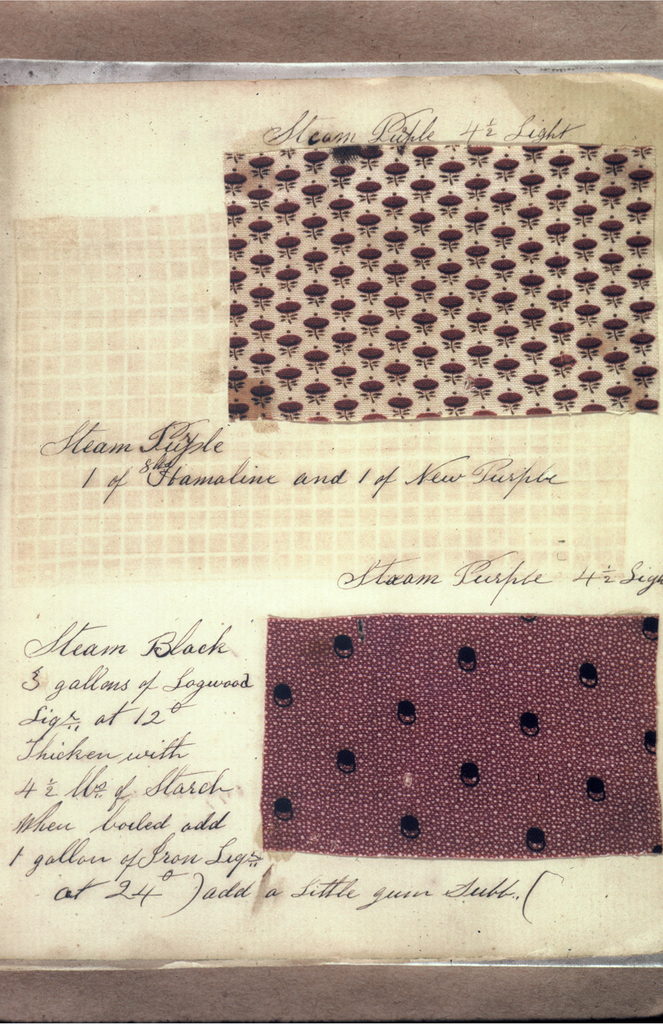 Steam Purple 4½ Light
Steam Purple
1 of and 1 of New Purple
Steam Purple 4½ Ligh
Steam Black
3 gallons of Logwood
Liqr. at 12°
Thicken with
4½ lbs of Starch
When boiled add
1 gallon of Iron Liqr.
at 24° ) add a little gum Subb. (